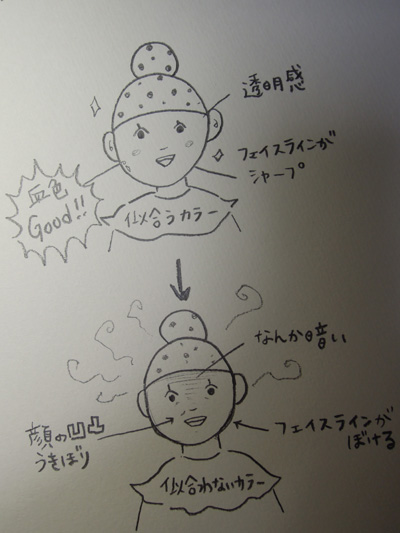 透明感
フェイスラインが
シャープ
血色
Good!!
似合うカラー
なんか暗い
顔の凹凸
うきぼり
フェイスラインが
ぼける
似合わないカラー